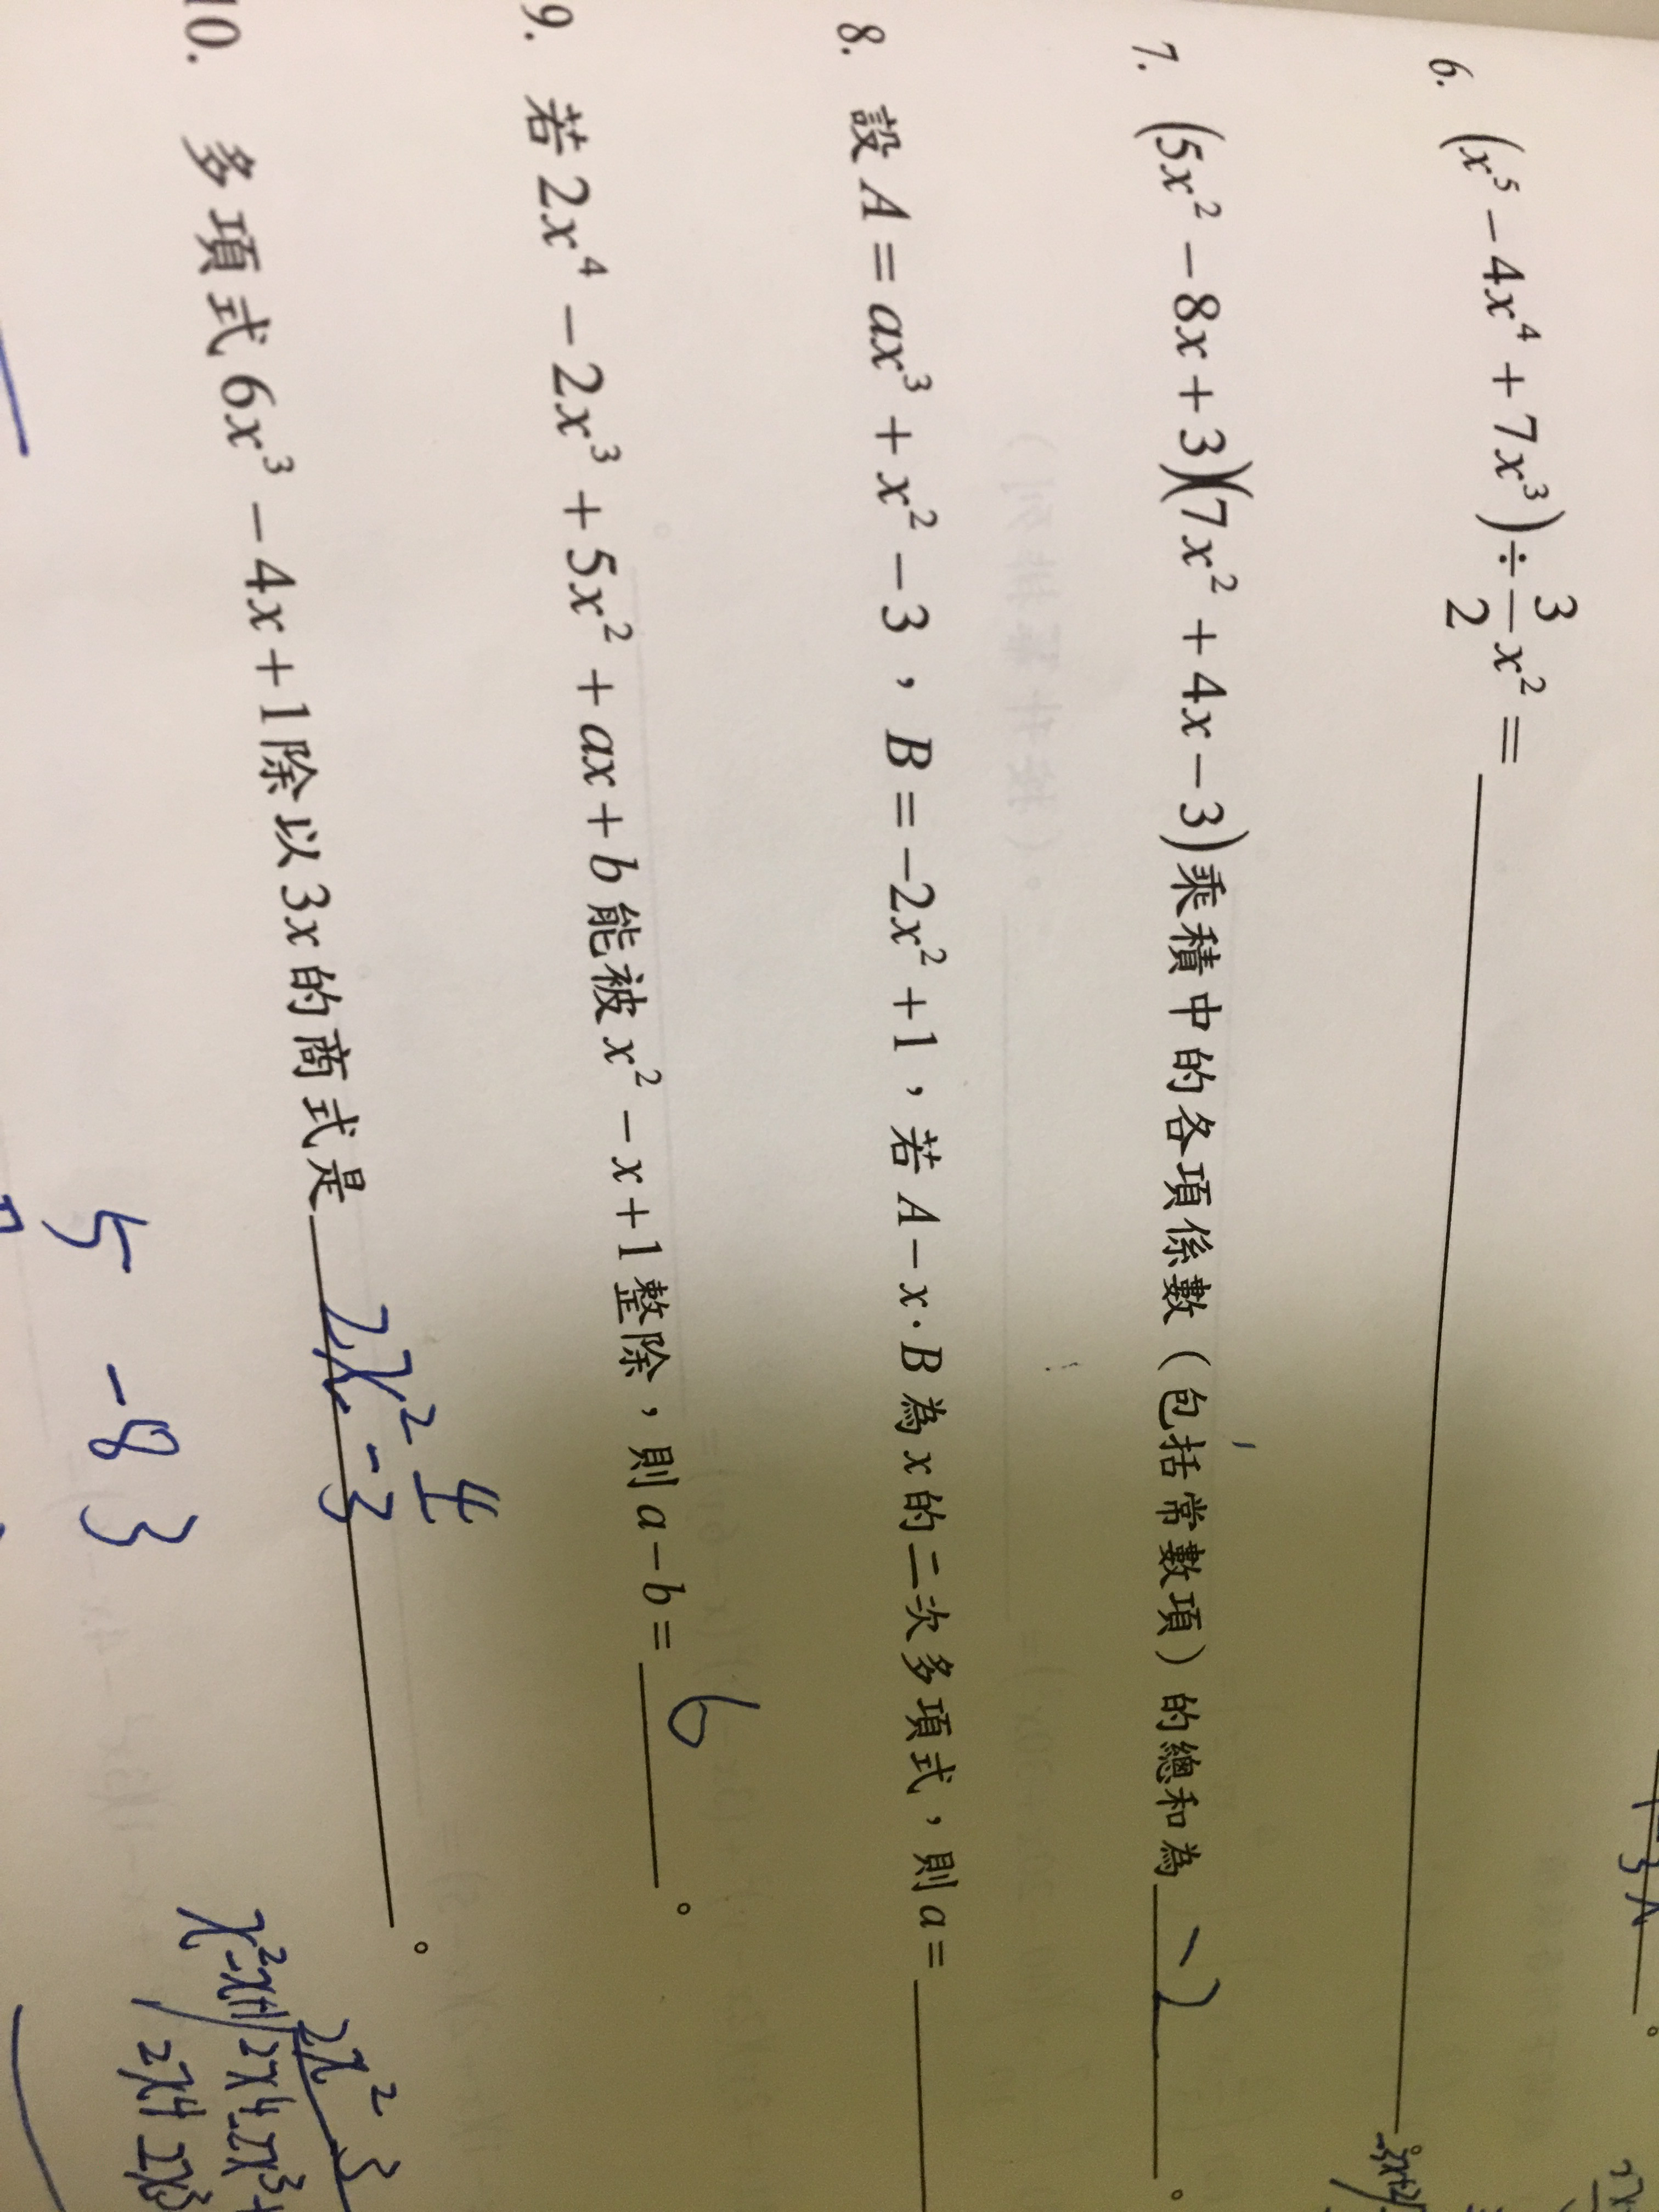 6. (x⁵ − 4x⁴ + 7x³) ÷ 3/2 x² = ______
7. (5x² − 8x + 3)(7x² + 4x − 3) 乘積中的各項係數（包括常數項）的總和為______。
8. 設 A = ax³ + x² − 3，B = −2x² + 1，若 A − x · B 為 x 的二次多項式，則 a = ______
9. 若 2x⁴ − 2x³ + 5x² + ax + b 能被 x² − x + 1 整除，則 a − b = 6 。
10. 多項式 6x³ − 4x + 1 除以 3x 的商式是 2x² − 4/3 。
5 -8 3
2x² 3
x²-x+1 2x⁴-2x³+
2x⁴ 2x³